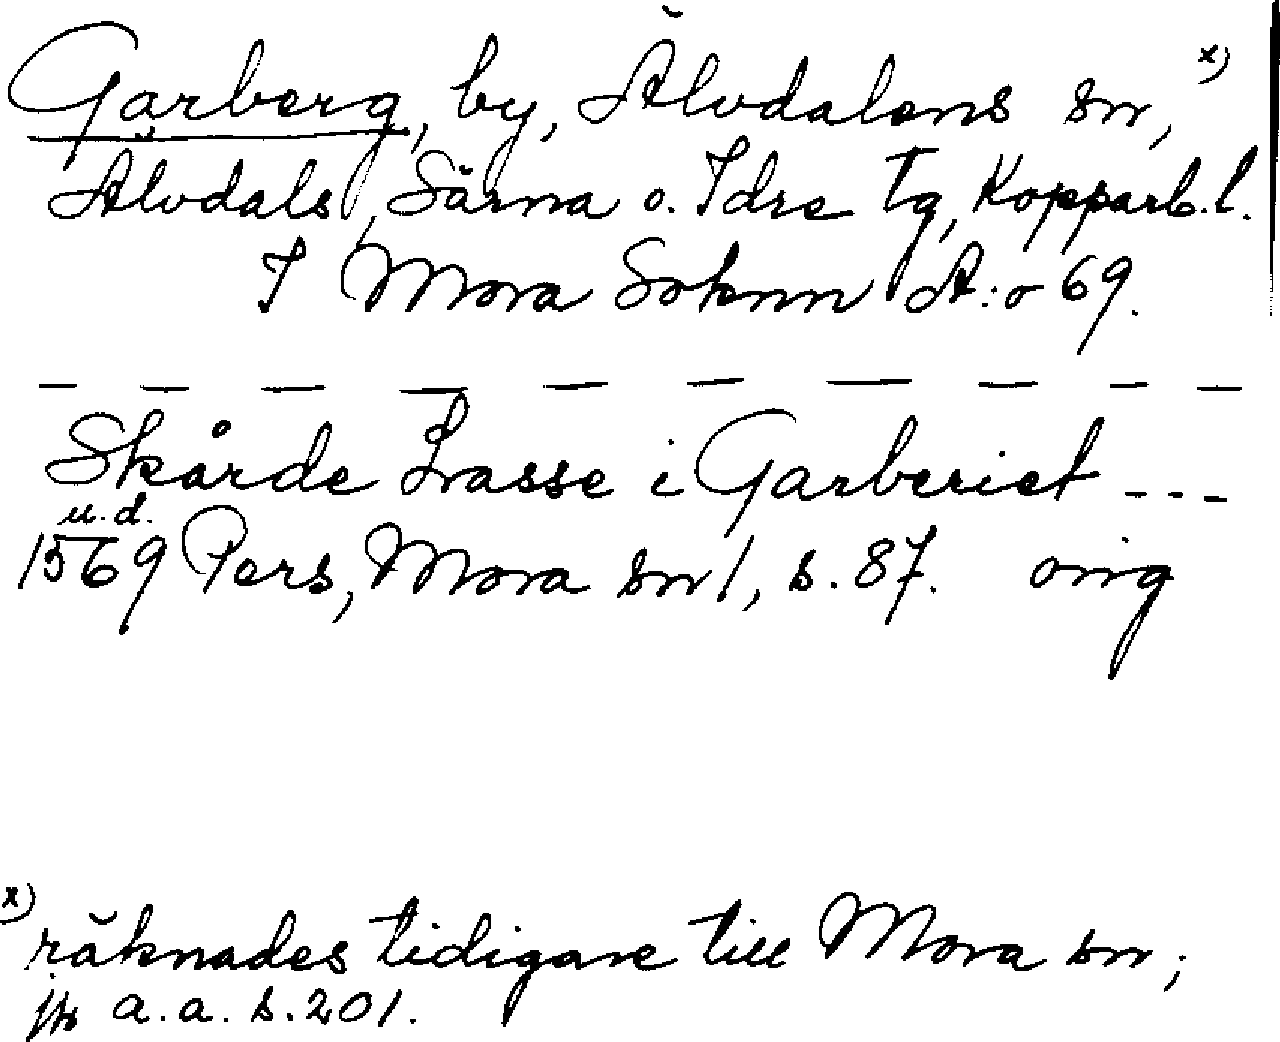 Garberg, by, Älvdalens sn, x)
Älvdals, Särna o. Idre tg, Kopparb. l.
I Mora Soknn A:o 69.
— — — — — — — — — —
Skårde Lasse i Garberiet ---
u.d.
1569 Pers, Mora sn 1, s. 87. orig
x)
räknades tidigare till Mora sn;
jfr a.a. s. 201.